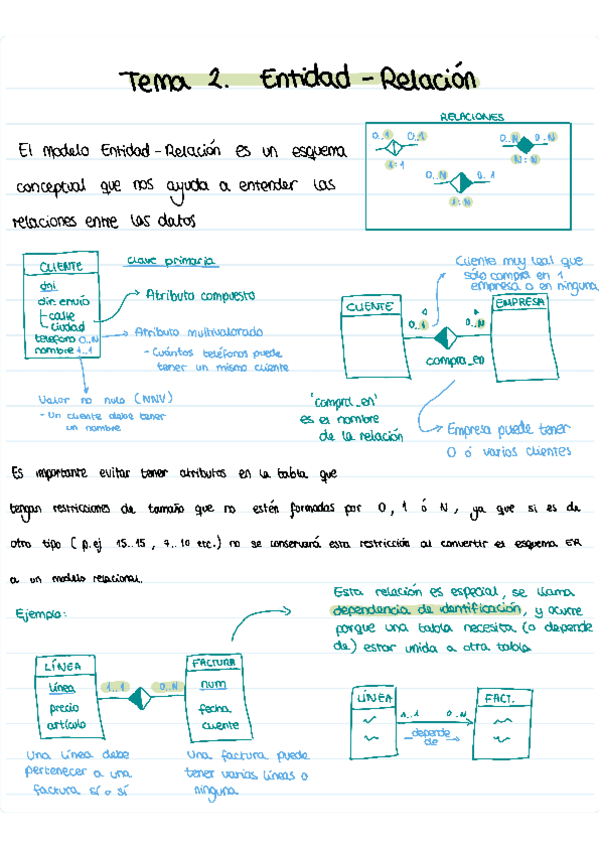 Tema 2. Entidad - Relación
El modelo Entidad-Relación es un esquema
conceptual que nos ayuda a entender las
relaciones entre los datos
RELACIONES
0..1 0..1
1:1
0..N 0..N
N:N
0..N 0..1
1:N
CLIENTE
dni
dir.envío
calle
ciudad
teléfono 0..N
nombre 1..1
clave primaria
Atributo compuesto
Atributo multivalorado
- Cuántos teléfonos puede
tener un mismo cliente
Valor no nulo (NNV)
- Un cliente debe tener
un nombre
Cliente muy leal que
sólo compra en 1
empresa o en ninguna
CLIENTE
0..1
0..N
EMPRESA
compra_en
'compra_en'
es el nombre
de la relación
Empresa puede tener
0 ó varios clientes
Es importante evitar tener atributos en la tabla que
tengan restricciones de tamaño que no estén formadas por 0, 1 ó N, ya que si es de
otro tipo (p.ej 15..15, 7..10 etc.) no se conservará esta restricción al convertir el esquema ER
a un modelo relacional.
Ejemplo:
Esta relación es especial, se llama
dependencia de identificación, y ocurre
porque una tabla necesita (o depende
de) estar unida a otra tabla
LÍNEA
línea
precio
artículo
1..1
0..N
FACTURA
num
fecha
cliente
Una línea debe
pertenecer a una
factura sí o sí
Una factura puede
tener varias líneas o
ninguna
LÍNEA
1..1
0..N
depende
de
FACT.